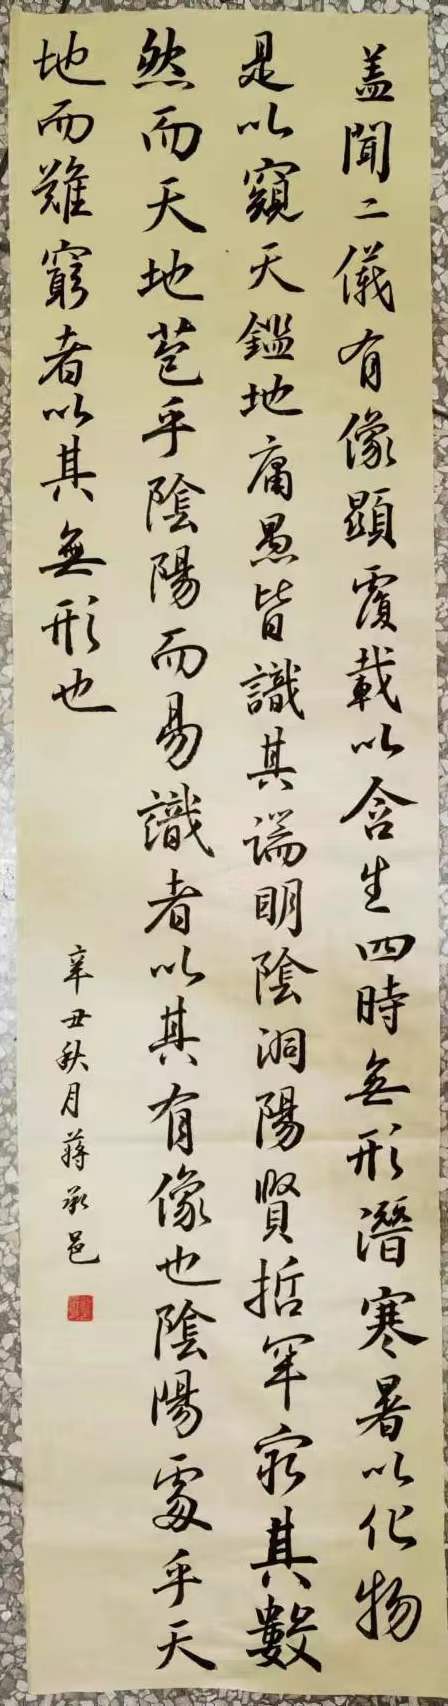 盖聞二儀有像顯覆載以含生四時無形潛寒暑以化物
是以窺天鑑地庸愚皆識其端明陰洞陽賢哲罕窮其數
然而天地苞乎陰陽而易識者以其有像也陰陽處乎天
地而難窮者以其無形也
辛丑秋月蔣承邑